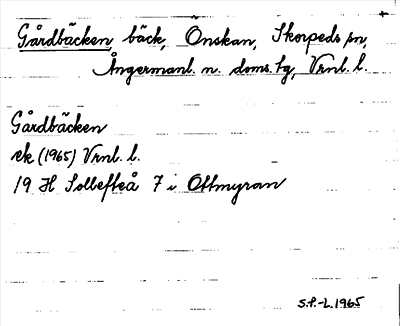 Gårdbäcken, bäck, Önskan, Skorpeds sn,
Ångermanl. n. doms. tg, Vrnl. l.
Gårdbäcken
ek (1965) Vrnl. l.
19 H Sollefteå 7 i Ottmyran
S.P.-L. 1965